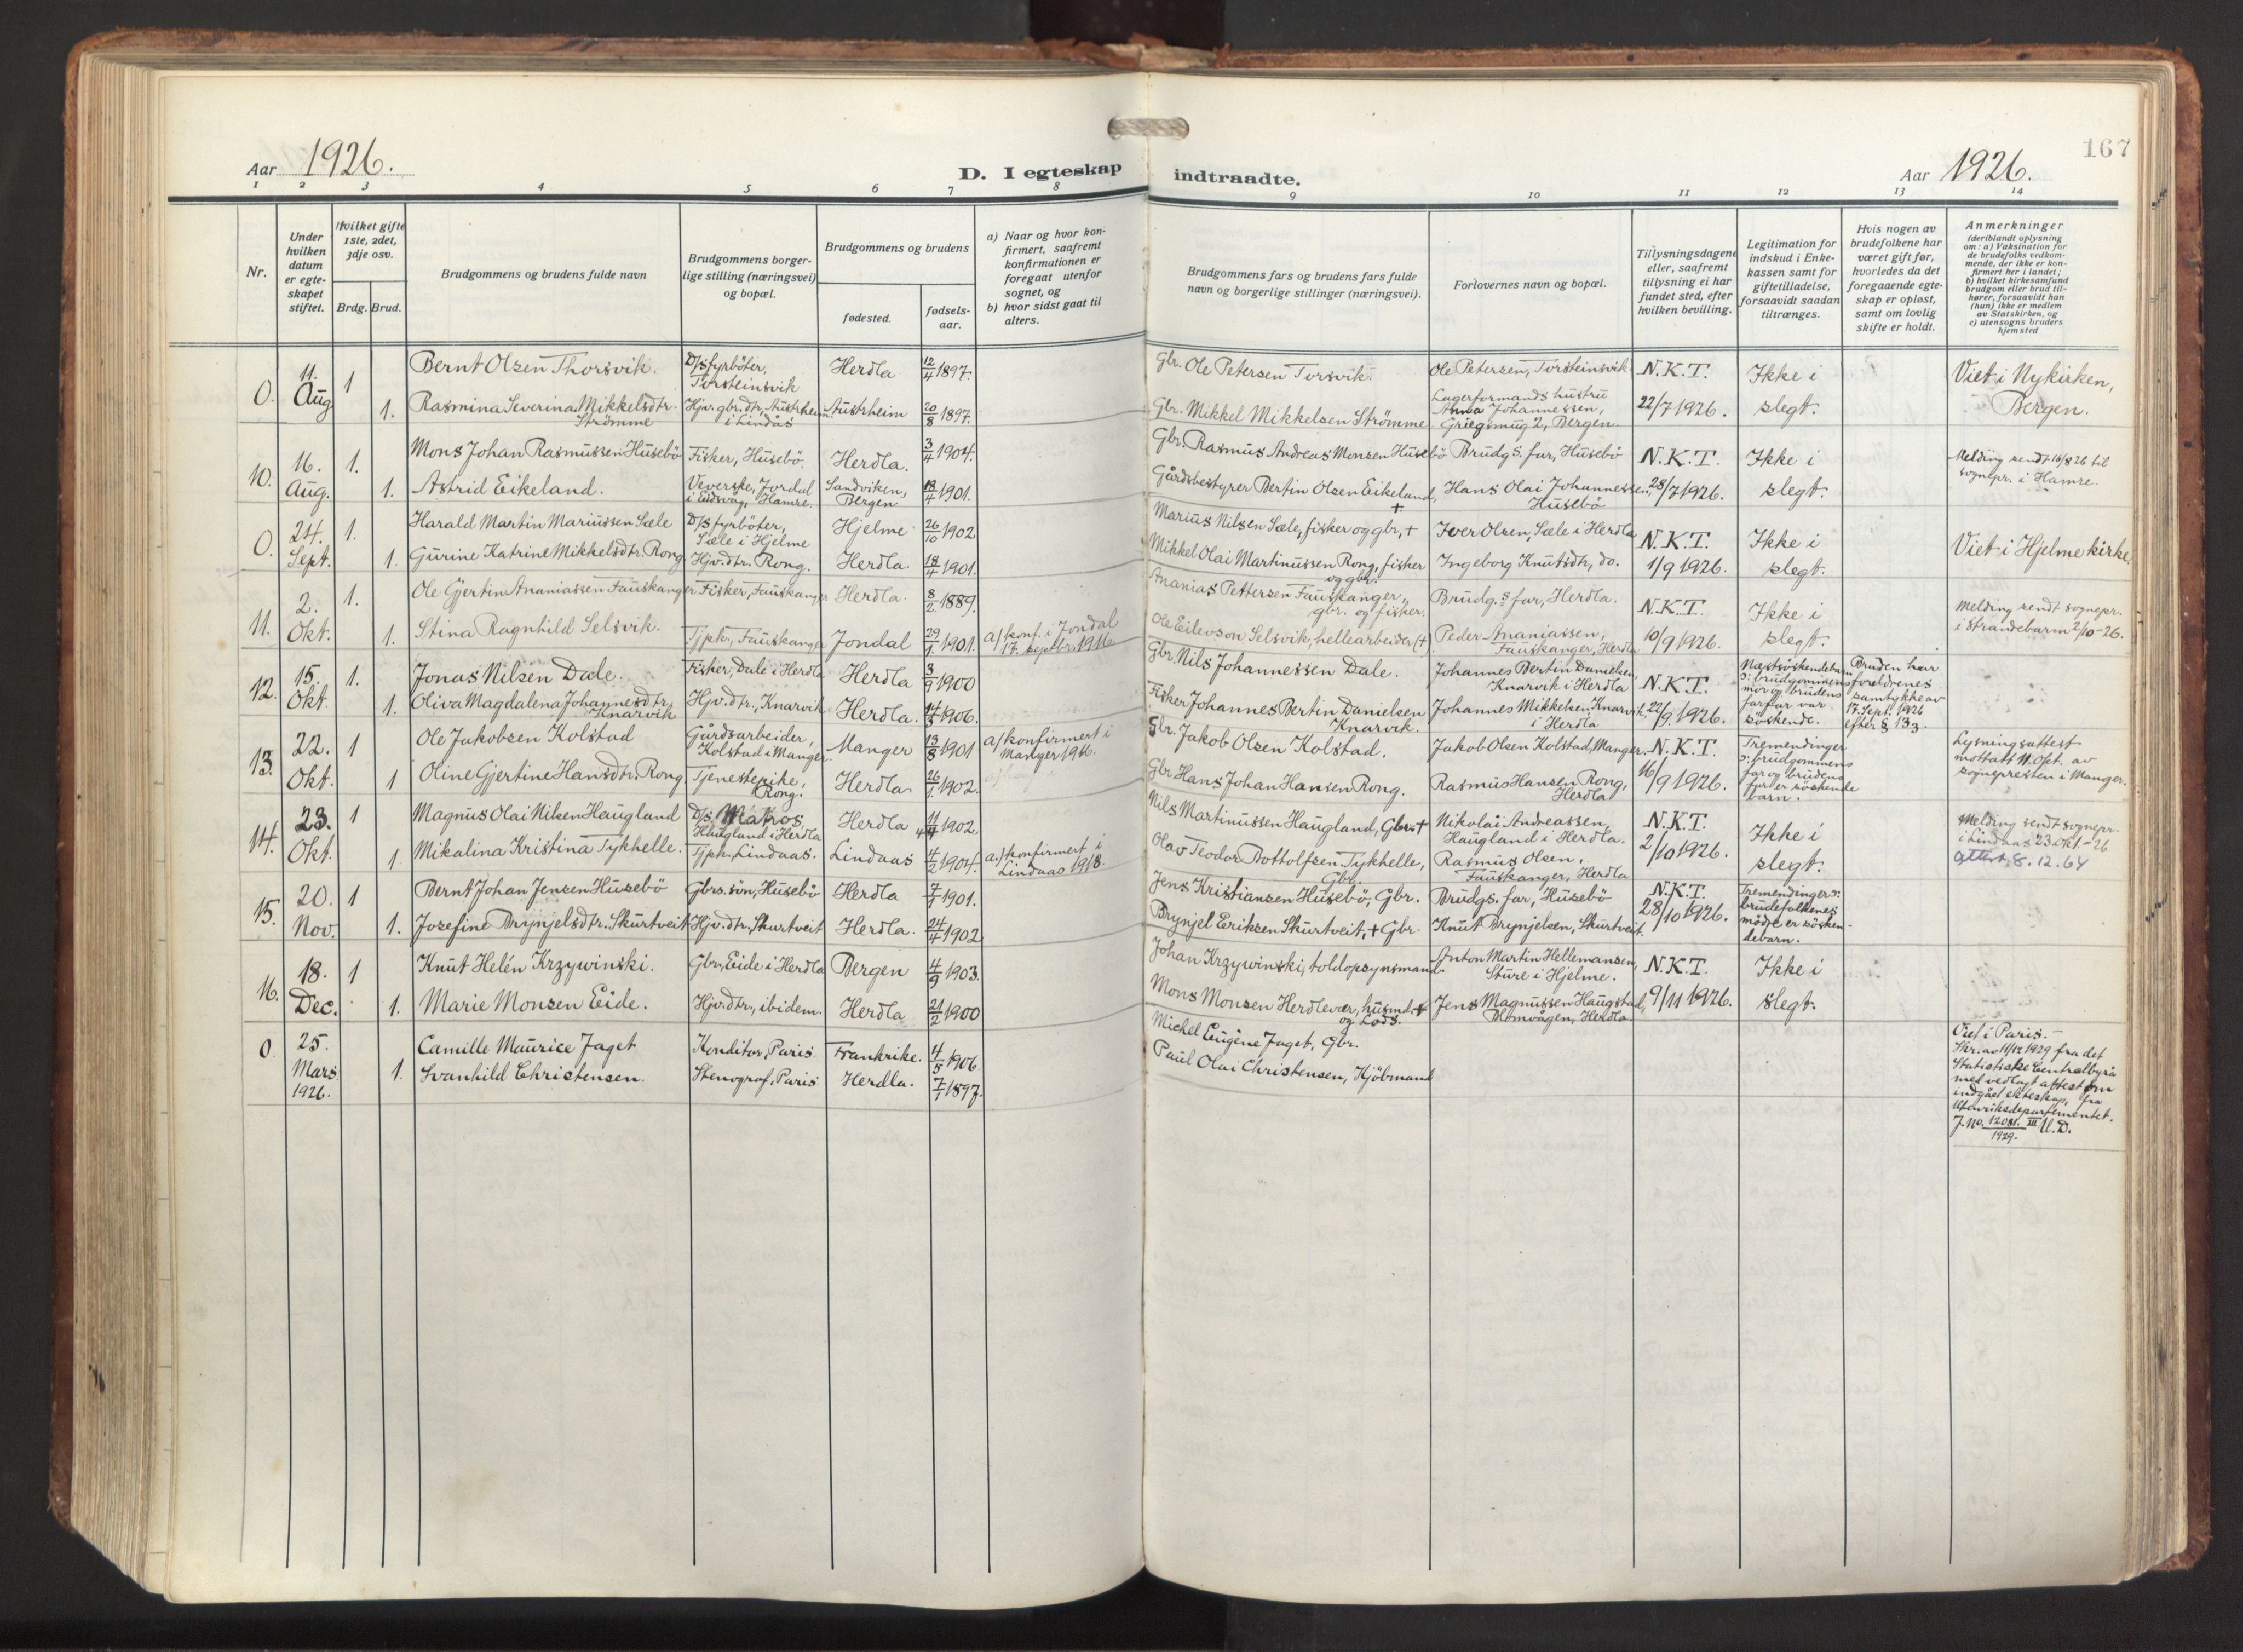 167
Aar 1926.
D. I egteskap indtraadte.
Aar 1926.
1 2 3 4 5 6 7 8 9 10 11 12 13 14
Nr.
Under hvilken datum er egteskapet stiftet.
Hvilket gifte 1ste, 2det, 3dje osv.
Brdg. Brud.
Brudgommens og brudens fulde navn
Brudgommens borgerlige stilling (næringsvei) og bopæl.
Brudgommens og brudens
fødested.
fødselsaar.
a) Naar og hvor konfirmert, saafremt konfirmationen er foregaat utenfor sognet, og
b) hvor sidst gaat til alters.
Brudgommens fars og brudens fars fulde navn og borgerlige stillinger (næringsvei).
Forlovernes navn og bopæl.
Tillysningsdagene eller, saafremt tillysning ei har fundet sted, efter hvilken bevilling.
Legitimation for indskud i Enkekassen samt for giftetilladelse, forsaavidt saadan tiltrænges.
Hvis nogen av brudefolkene har været gift før, hvorledes da det foregaaende egteskap er opløst, samt om lovlig skifte er holdt.
Anmerkninger (deriblandt oplysning om: a) Vaksination for de brudefolks vedkommende, der ikke er konfirmert her i landet; b) hvilket kirkesamfund brudgom eller brud tilhører, forsaavidt han (hun) ikke er medlem av Statskirken, og c) utensogns bruders hjemsted
0. 11. Aug 1 Bernt Olsen Thorsvik. D/s fyrböter, Torsteinsvik Herdla 12/4 1897. Gbr. Ole Petersen Torsvik. Ole Petersen, Torsteinsvik. N.K.T. Ikke i Viet i Nykirken,
1. Rasmina Severina Mikkelsdtr. Strömme Hjv. gbr. dtr, Austrheim i Lindås Austrheim 20/8 1897. Gbr. Mikkel Mikkelsen Strömme Lagerformands hustru Anna Johannessen, Griegsmug 2, Bergen. 22/7 1926. slegt. Bergen.
10. 16. Aug. 1. Mons Johan Rasmussen Husebö Fisker, Husebö. Herdla. 3/4 1904. Gbr. Rasmus Andreas Monsen Husebö Brudg s. far, Husebö N.K.T. Ikke i Melding sendt 16/8 26 til
1. Astrid Eikeland. Veverske, Jordal i Eidsvåg, Hamre. Sandviken, Bergen 18/4 1901. Gårdsbestyrer Bertin Olsen Eikeland, + Hans Olai Johannessen, Husebö 28/7 1926. slegt. sognepr. i Hamre.
0. 24. Sept. 1. Harald Martin Mariussen Sæle D/s fyrböter, Sæle i Hjelme Hjelme 26/10 1902 Marius Nilsen Sæle, fisker og gbr, + Iver Olsen Sæle i Herdla N.K.T. Ikke i Viet i Hjelme kirke.
1. Gurine Katrine Mikkelsdtr. Rong Hjv. dtr. Rong. Herdla. 18/4 1901. Mikkel Olai Martinussen Rong, fisker og gbr. Ingeborg Knutsdtr, do. 1/9 1926. slegt.
11. 2. Okt. 1. Ole Gjertin Ananiassen Fauskanger Fisker, Fauskanger Herdla. 8/2 1889. Ananias Pettersen Fauskanger, gbr. og fisker. Brudg. s far, Herdla. N.K.T. Ikke i Melding sendt sognepr.
1. Stina Ragnhild Selsvik. Tjpk, Fauskanger Jondal 29/1 1901. a) konf. i Jondal 17. septbr. 1916 Ole Eilevson Selsvik, hellearbeider (+) Peder Ananiassen, Fauskanger, Herdla 10/9 1926. slegt. i Strandebarm 2/10-26.
12. 15. Okt. 1. Jonas Nilsen Dale. Fisker, Dale i Herdla Herdla 3/9 1900 Gbr. Nils Johannessen Dale. Johannes Bertin Danielsen, Knarvik i Herdla N.K.T. Næstsöskendebarn ɔ: brudgommens mor og brudens farfar var söskende. Bruden har foreldrenes samtykke av 17. Sept. 1926 efter § 133.
1. Oliva Magdalena Johannesdtr. Knarvik Hjv. dtr., Knarvik Herdla. 14/5 1906. Fisker Johannes Bertin Danielsen Knarvik. Johannes Mikkelsen Knarvik, i Herdla 22/9 1926.
13. 22. Okt. 1 Ole Jakobsen Kolstad Gårdsarbeider, Kolstad i Manger. Manger 13/8 1901 a) konfirmert i Manger 1916. Gbr. Jakob Olsen Kolstad. Jakob Olsen Kolstad, Manger. N.K.T. Tremendinger ɔ: brudgommens far og brudens far er söskendebarn. Lysningsattest mottatt 11. Okt. av sognepresten i Manger.
1 Oline Gjertine Hansdtr. Rong Tjenestepike, Rong. Herdla 26/1 1902. Gbr Hans Johan Hansen Rong. Rasmus Hansen Rong, Herdla 16/9 1926.
14. 23. Okt. 1 Magnus Olai Nilsen Haugland D/s Matros, Haugland i Herdla Herdla 11/4 1902 Nils Martinussen Haugland, Gbr. + Nikolai Andreassen, Haugland i Herdla. N.K.T. Ikke i Melding sendt sognepr. i Lindaas 23. okt.-26
1. Mikalina Kristina Tykhelle. Tjpk. Lindaas. Lindaas 4/2 1904. a.) konfirmert i Lindaas 1918. Olav Teodor Bottolfsen Tykhelle, Gbr. Rasmus Olsen, Fauskanger, Herdla 2/10 1926. slegt. attest 8.12.64
15. 20. Nov. 1 Bernt Johan Jensen Husebö Gbrs. sön, Husebö Herdla 7/1 1901. Jens Kristiansen Husebö, Gbr. Brudgs. far, Husebö N.K.T. Tremendinger ɔ: brudefolkenes mödre er söskendebarn.
1. Josefine Brynjelsdtr. Skurtveit Hjv. dtr, Skurtveit Herdla. 24/4 1902 Brynjel Eriksen Skurtveit, + Gbr. Knut Brynjelsen, Skurtveit. 28/10 1926.
16. 18. Dec. 1 Knut Helén Krzywinski. Gbr, Eide i Herdla Bergen 4/9 1903. Johan Krzywinski, toldopsynsmand. Anton Martin Hellemansen, Sture i Hjelme. N.K.T. Ikke i
1. Marie Monsen Eide. Hjv. dtr., ibidem. Herdla 21/2 1900 Mons Monsen Herdlevær, husmd. + og Lods. Jens Magnussen Haugstad, Blomvågen, Herdla. 9/11 1926. slegt.
0. 25. Mars 1926. Camille Maurice Jaget Konditor, Paris. Frankrike. 4/5 1906. Michel Eugène Jaget, Gbr. Viet i Paris.
1. Svanhild Christensen. Stenograf, Paris Herdla. 7/1 1897. Paul Olai Christensen, Kjöbmand
Skr. av 11/12 1929 fra det
Statistiske Centralbyrå
med vedlagt attest om
indgået ekteskap, fra
Utenriksdepartementet.
J. No. 12081. III U.D.
1929.